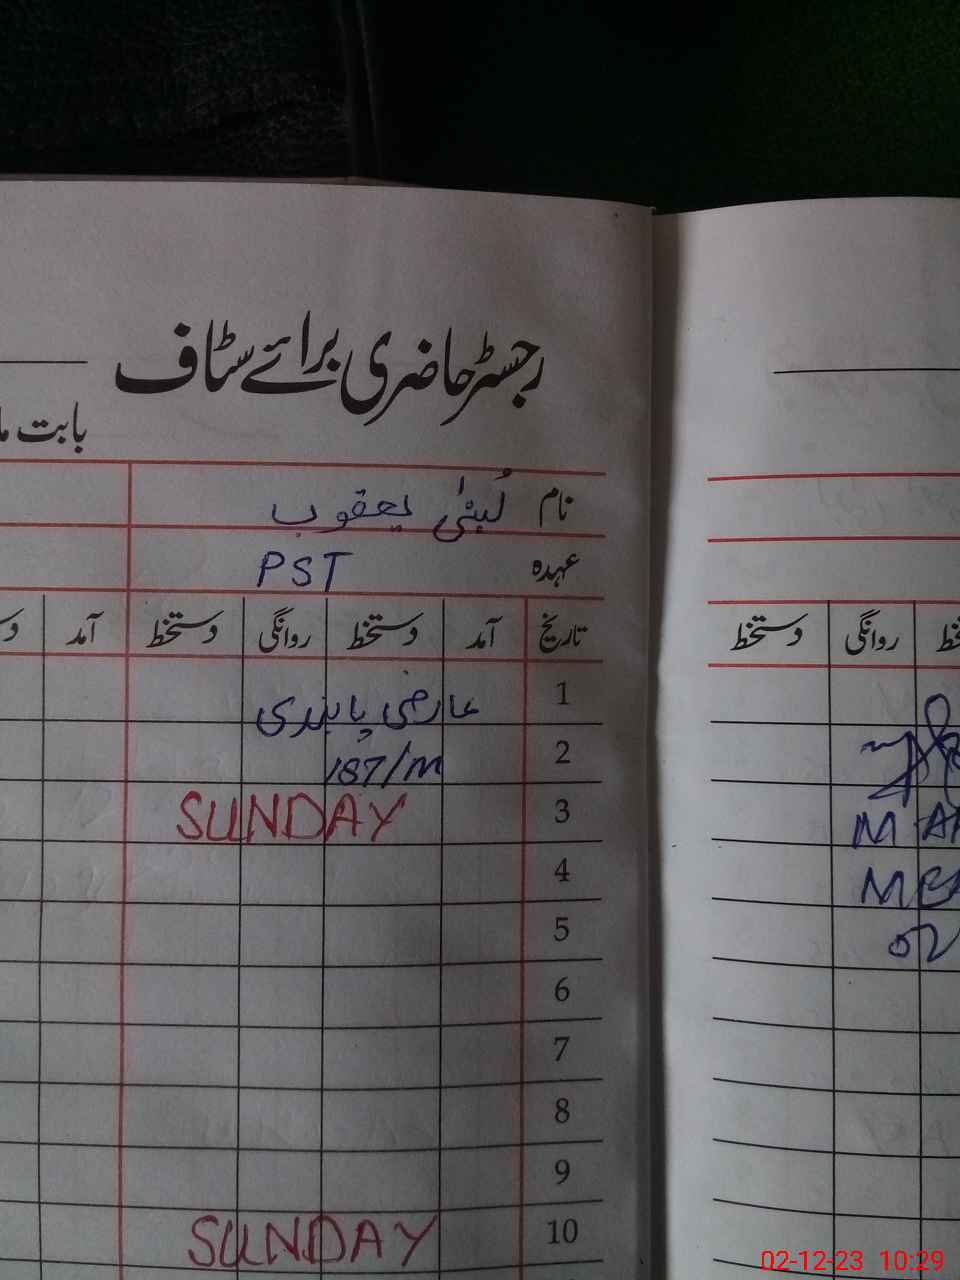 رجسٹر حاضری برائے سٹاف
بابت ما
نام لُبنٰی یعقوب
عہدہ PST
تاریخ آمد دستخط روانگی دستخط آمد
دستخط روانگی
1 عارضی پابندی
2 187/M
3 SUNDAY
4
5
6
7
8
9
10 SUNDAY
02-12-23 10:29